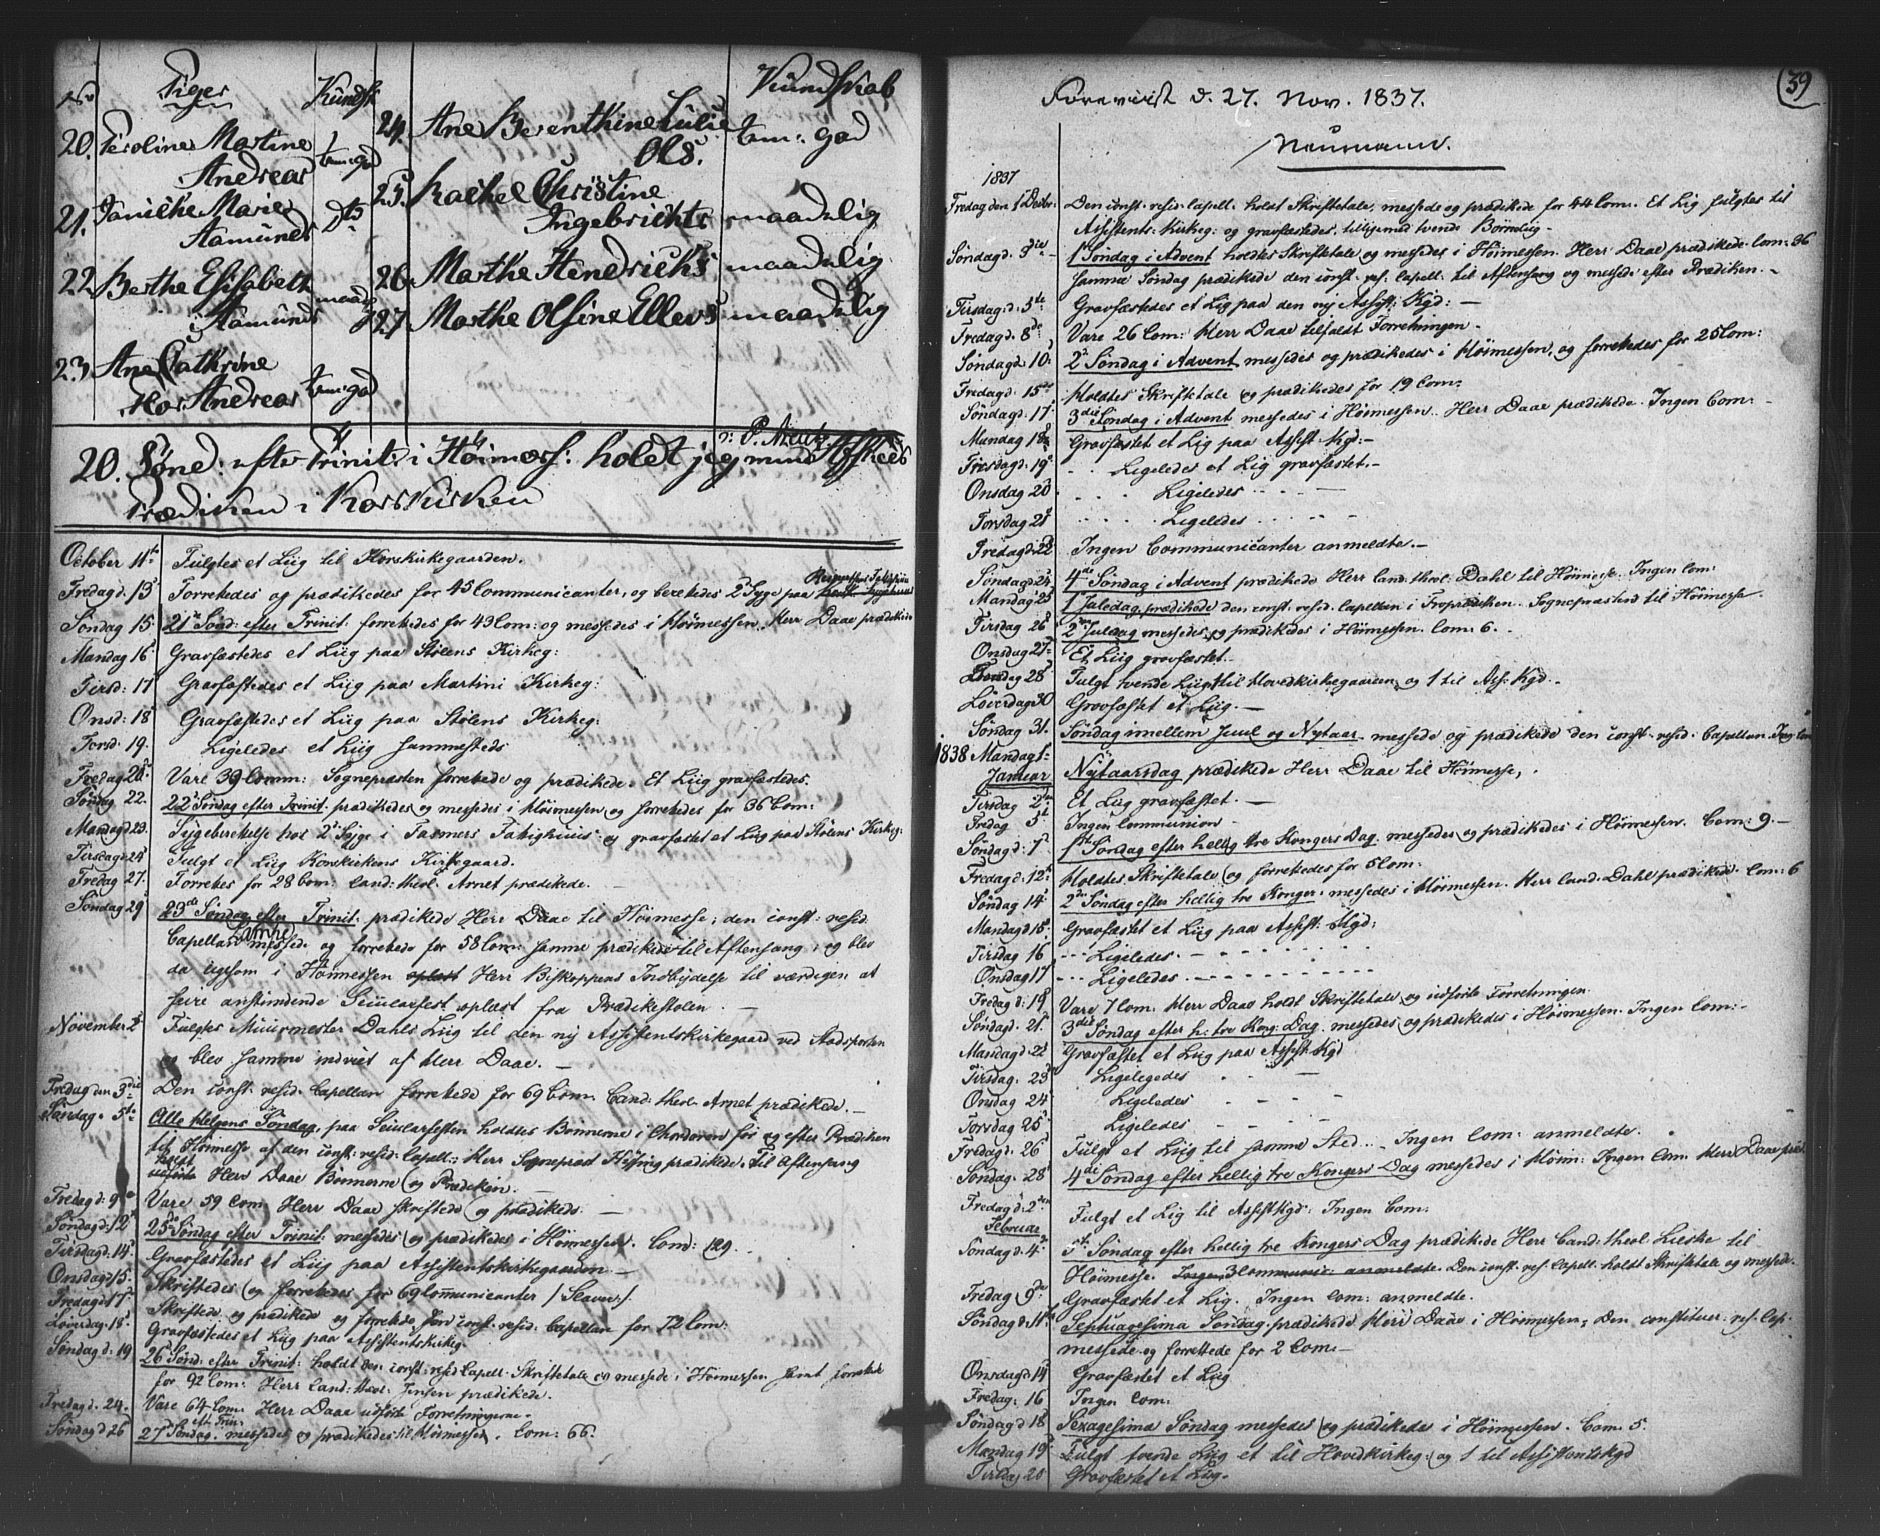 No Piger Kundsk Kundskab
20. Peroline Martine Andreas tem: god
21. Janikke Marie Aamunds Do
22. Berthe Elisabeth Aamunds maad
23. Ane Cathrine Andreas tem: god
24. Ane Berenthine Lulie Ols. tem: god
25. Rachel Christine Ingebrichts maadelig
26. Marthe Hendrichs maadelig
27. Marthe Olsine Ellevs maadelig
20. Sønd: efter Trinit: i Høimess: holdt jeg min Afskeds
Prædiken i Korskirken
October 11te Fulgtes et Liig til Korskirkegaarden.
Fredag d. 13 Forrettedes og prædikedes for 45 Communicanter, og berettedes 2 Syge paa
Søndag 15 21de Sønd: efter Trinit: forrettedes for 49 Com: og messedes i Høimessen. Herr Daae prædikede
Mandag 16 Gravfæstedes et Liig paa Stølens Kirkeg:
Tirsd: 17 Gravfæstedes et Liig paa Martini Kirkeg:
Onsd: 18 Gravfæstedes et Liig paa Stølens Kirkeg:
Torsd: 19. Ligeledes et Liig sammesteds
Fredag 20 Vare 39 Comm: Sognepræsten forrettede og prædikede. Et Liig gravfæstedes.
Søndag 22. 22de Søndag efter Trinit: prædikedes og messedes i Høimessen og forrettedes for 36 Com:
Mandag d. 23. Sygeberettelse hos 2de Syge i Fattighuus og gravfæstet et Liig paa Stølens Kirkeg:
Tirsdag d. 24 Fulgt et Liig Korskirkens Kirkegaard.
Fredag 27. Forrettes for 28 Com: Cand: theol. Arnet prædikede.
Søndag 29 23de Søndag efter Trinit: prædikede Herr Daae til Høimesse; den const: resid:
Capellan messede og forrettede for 58 Com: Samme prædikede til Aftensang, og blev
da ligesom i Høimessen oplæst Herr Biskoppens Indbydelse til værdigen at
feire anstundende Seculærfest oplæst fra Prædikestolen.
November 2 Fulgtes Muurmester Dahls Liig til den ny Assistentskirkegaard ved
og blev samme indviet af Herr Daae.
Fredag den 3die Den const: resid: Capellan forrettede for 69 Com: Cand: theol: Arnet prædikede.
Søndag. 5te Alle Helgens Søndag, paa Seculærfesten holdtes Bønnerne i Chordøren før og efter Prædiken
til Høimesse af den const: resid: Capell: Herr Sognepræst prædikede. Til Aftensang
holdt Herr Daae Bønnerne og Prædiken.
Fredag d. 9 Vare 59 Com Herr Daae skriftede og prædikede
Søndag d: 12 25de Søndag efter Trinit: messedes og prædikedes i Høimessen. Com: 129.
Tirsdag d: 14 Gravfæstedes et Liig paa Assistentskirkegaarden
Onsdag d 15. Skriftedes og forrettedes for 69 Communicanter /: Slaver :/
Fredag d: 17 Skriftede og prædikede og forrettede den const: resid: Capellan for 72 Com:
Løverdag. 18 Gravfæstedes et Liig paa Assistentskirkeg.
Søndag d: 19 26 Sønd: efter Trinit: holdt den const: resid: Capell: Skriftetale og messede i Høimessen samt forrettede
for 92 Com: Herr Cand: theol: Jensen prædikede.
Fredag d. 24. Vare 64 Com. Herr Daae udførte Forretningerne.
Søndag d 26 27 Søndag eft Trin: messedes og prædikedes til Høimesse. Com: 66.
39
Foreviist d. 27. Nov. 1837.
Neumann.
1837
Fredag den 1 Decbr: Den const: resid: Capell: holdt Skriftetale, messede og prædikede for 44 Com. Et Lig fulgtes til
Assistents-Kirkeg: og gravfæstedes, tilligemed tvende Børnelig.
Søndag d. 3die 1 Søndag i Advent holdtes Skriftetale og messedes i Høimessen. Herr Daae prædikede. Com: 36
Samme Søndag prædikede den const. res. Capell: til Aftensang og messede efter Prædiken.
Tirsdag d: 5te Gravfæstedes et Lig paa den ny Assist: Kgd:
Fredag d. 8de Vare 26 Com: Herr Daae tilfaldt Forretningen.
Søndag d. 10. 2de Søndag i Advent messedes og prædikedes i Høimessen, og forrettedes for 25 Com:
Fredag d. 15de Holdtes Skriftetale og prædikedes for 19 Com:
Søndag d. 17. 3die Søndag i Advent messedes i Høimessen. Herr Daae prædikede. Ingen Com:
Mandag 18 Gravfæstet et Lig paa Assist. Kgd:
Tirsdag d. 19 Ligeledes et Lig gravfæstet.
Onsdag 20 Ligeledes
Torsdag 21 Ligeledes
Fredag d: 22 Ingen Communicanter anmeldte.
Søndag d. 24 4de Søndag i Advent prædikede Herr Cand. theol: Dahl til Høimesse. Ingen Com:
Mandag 25 1 Juledag prædikede den const. resid. Capellan i Froprædiken. Sognepræsten til Høimesse
Tirsdag 26 2den Juledag messedes og prædikedes i Høimessen. Com: 6.
Onsdag 27 Et Liig gravfæstet.
Torsdag 28 Fulgt tvende Liig 1 til Hovedkirkegaarden og 1 til Ass: Kgd.
Løverdag 30 Gravfæstet et Liig.
Søndag 31. Søndag imellem Juul og Nytaar messede og prædikede den const. resid. Capellan. Ing. Com
1838 Mandag 1 Januar Nytaarsdag prædikede Herr Daae til Høimesse.
Tirsdag 2den Et Liig gravfæstet.
Fredag 5te Ingen Communion.
Søndag d. 7 1ste Søndag efter hellig tre Kongers Dag messedes og prædikedes i Høimessen. Com: 9.
Fredag d: 12 Holdtes Skriftetale og forrettedes for 5 Com:
Søndag 14 2den Søndag efter hellig tre Konger messedes i Høimessen. Herr Cand. Dahl prædikede. Com: 6
Mandag d 15 Gravfæstet et Liig paa Assist: Kgd:
Tirsdag 16 Ligeledes
Onsdag 17 Ligeledes
Fredag d: 19 Vare 7 Com. Herr Daae holdt Skriftetale og udførte Forretningen.
Søndag d. 21. 3die Søndag efter h: tre Kong: Dag messedes og prædikedes i Høimessen. Ingen Com:
Mandag d 22 Gravfæstet et Liig paa Assist: Kgd
Tirsdag. 23 Ligelegedes
Onsdag 24 Ligeledes
Torsdag 25 Ligeledes
Fredag d. 26 Fulgt et Liig til samme Sted. Ingen Com: anmeldte.
Søndag. 28 4de Søndag efter hellig tre Kongers Dag messedes i Høim: Ingen Com. Herr Daae præd.
Fredag d: 2den Februar Fulgt et Lig til Assistkgd: Ingen Com:
Søndag d: 4 5te Søndag efter hellig tre Kongers Dag prædikede Herr Cand: theol: Lieske til
Høimesse. Ingen Communic: anmeldte. Den const. res. Capell: holdt Skriftetale og messede.
Fredag 9de Gravfæstet et Lig. Ingen Com: anmeldte.
Søndag d. 11 Septuagesima Søndag prædikede Herr Daae i Høimessen; Den constituer: res. Cap.
messede og forrettede for 2 Com.
Onsdag d 14 Gravfæstet et Liig
Fredag. 16 Ingen Com.
Søndag d 18 Sexagesima Søndag messedes og prædikedes i Høimessen. Com: 5.
Mandag 19 Fulgt tvende Liig et til Hovedkirkeg: og 1 til Assistentskgd
Tirsdag 20 Gravfæstet et Liig.